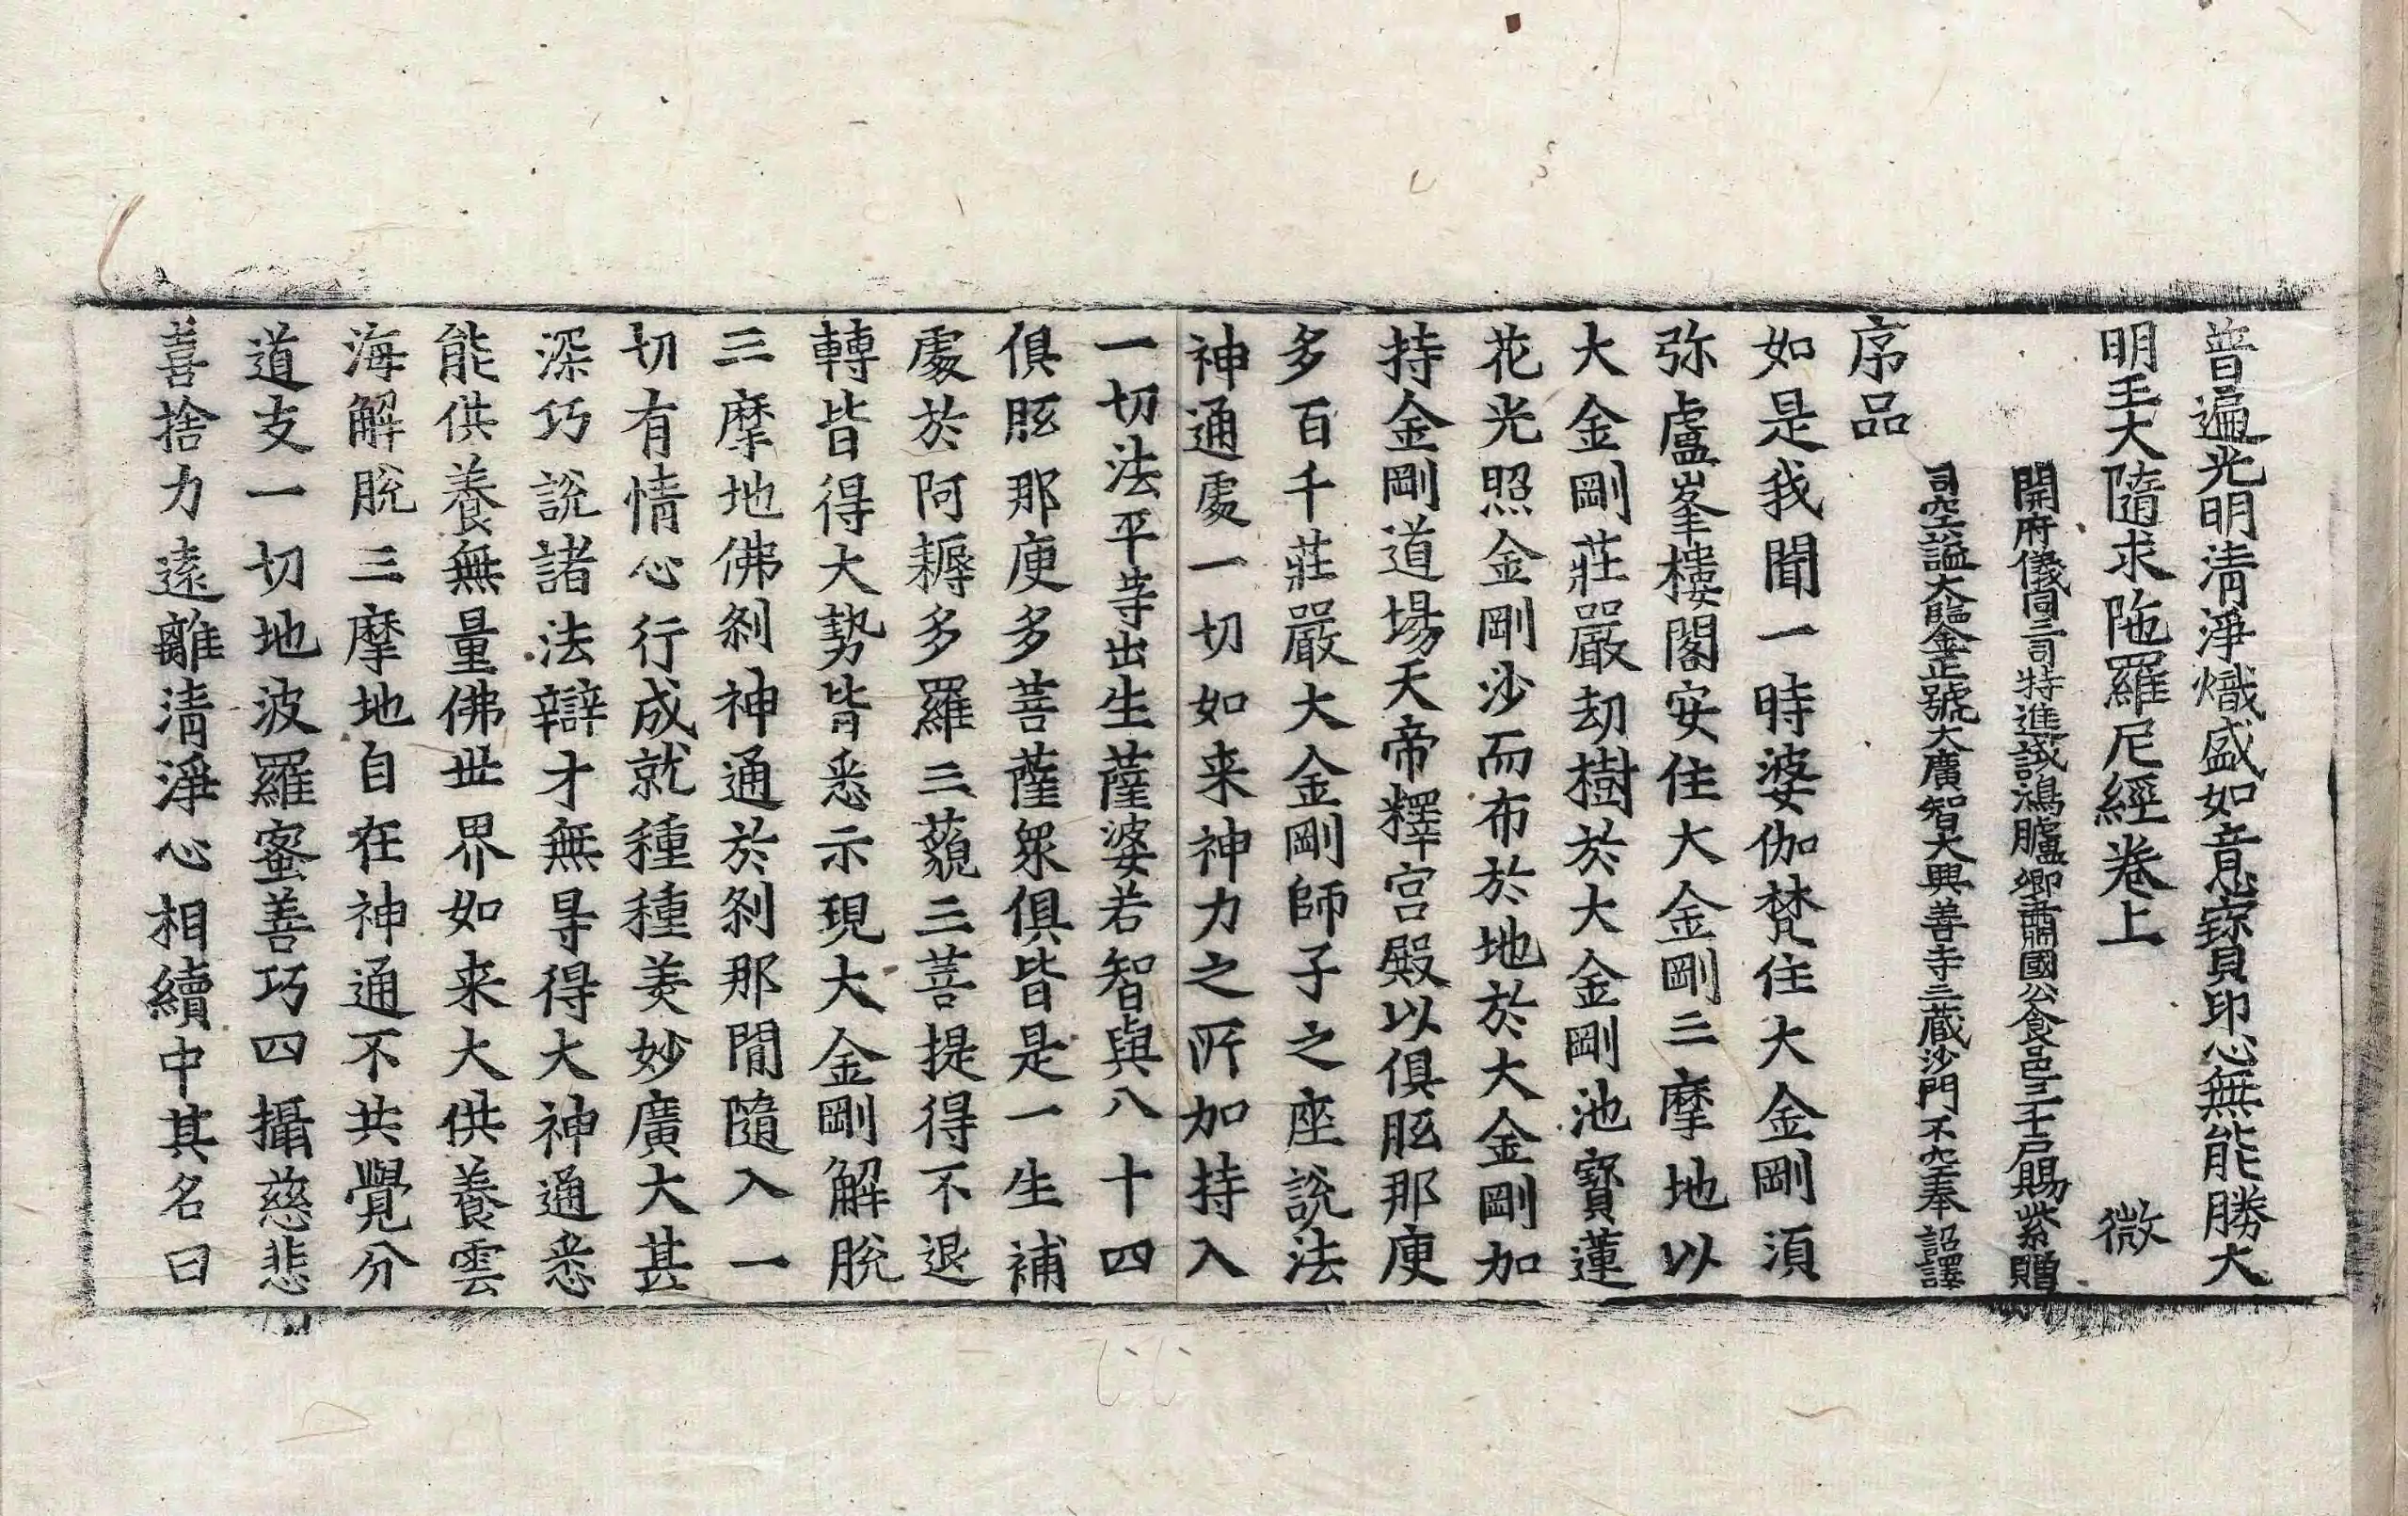 普遍光明清淨熾盛如意寶印心無能勝大
明王大隨求陁羅尼經卷上 微
開府儀同三司特進試鴻臚卿肅國公食邑三千戶賜紫贈
司空謚大鑒正號大廣智大興善寺三藏沙門不空奉 詔譯
序品
如是我聞一時婆伽梵住大金剛湏
弥盧峯樓閣安住大金剛三摩地以
大金剛莊嚴劫樹於大金剛池寶蓮
花光照金剛沙而布於地於大金剛加
持金剛道場天帝釋宮殿以俱胝那庾
多百千莊嚴大金剛師子之座說法
神通處一切如来神力之所加持入
一切法平等出生薩婆若智與八十四
俱胝那庾多菩薩衆俱皆是一生補
處於阿耨多羅三藐三菩提得不退
轉皆得大勢皆悉示現大金剛解脫
三摩地佛剎神通於剎那閒隨入一
切有情心行成就種種美妙廣大甚
深巧說諸法辯才無㝵得大神通悉
能供養無量佛世界如来大供養雲
海解脫三摩地自在神通不共覺分
道支一切地波羅蜜善巧四攝慈悲
喜捨力遠離清淨心相續中其名曰